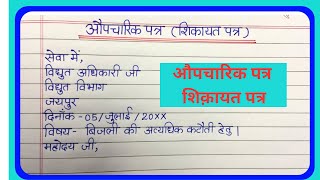 औपचारिक पत्र (शिकायत पत्र)
सेवा में,
विद्युत अधिकारी जी
विद्युत विभाग
जयपुर
दिनाँक -05/जुलाई/20XX
विषय- बिजली की अत्यधिक कटौती हेतु।
महोदय जी,
औपचारिक पत्र
शिक़ायत पत्र